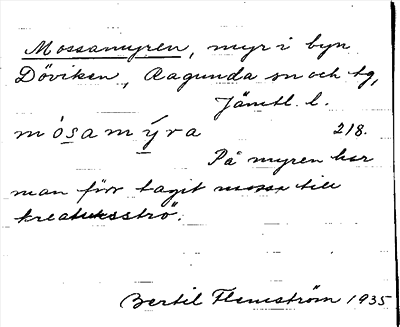 Mossamyren, myr i byn
Döviken, Ragunda sn och tg,
Jämtl. l.
mósamýra 218.
På myren har
man förr tagit mossa till
kreatursströ.
Bertil Flemström 1935